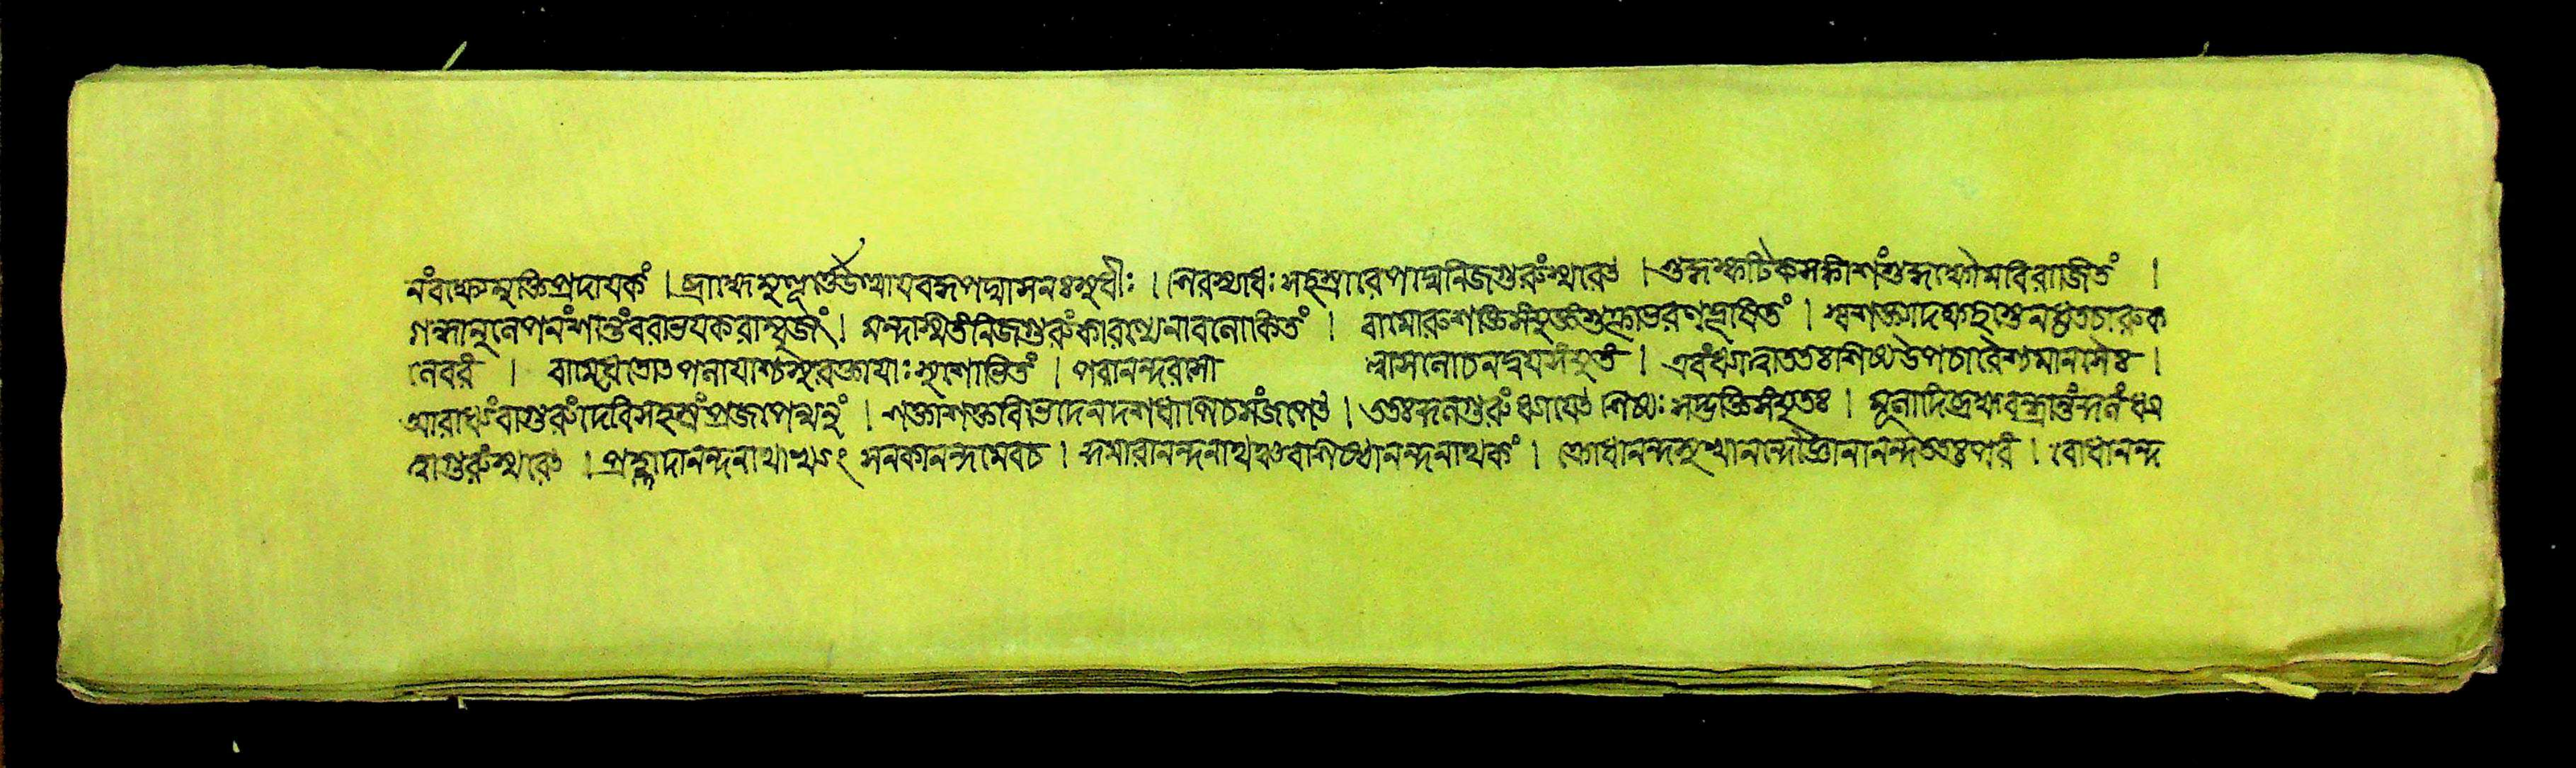 নংবক্ষ্যেমুক্তিপ্রদাযকং । ব্রাহ্মেমুহূর্ত্তেউত্থাযবদ্ধপদ্মাসনঃসুধীঃ । । শিরস্থাধঃসহস্রারেপদ্মেনিজগুরুংস্মরেৎ । শুদ্ধস্ফটিকসঙ্কাশংশুদ্ধক্ষৌমবিরাজিতং ।
গন্ধানুলেপনংশান্তংবরাভযকরাম্বুজং । মন্দস্মিতংনিজগুরুংকারুণ্যেনাবলোকিতং । বামোরুশক্তিসংযুক্তংশুক্লাভরণভূষিতং । স্বশক্ত্যাদক্ষহস্তেনধৃতচারুক
লেবরং । বামেধৃতোৎপলাযাশ্চসুরক্তাযাঃসুশোভিতং । পরানন্দরসো ল্লাসলোচনদ্বযসংযুতং । এবংধ্যাত্বাততঃশিষ্যউপচারৈশ্চমানসৈঃ ।
আরাধ্যংবাগুরুংদেবিসহস্রংপ্রজপেন্মনুং । শক্তাশক্তবিভেদেনদশধাপিচসংজপেৎ । এতঃকুলগুরুংধ্যাযেৎশিষ্যঃসদ্ভক্তিসংযুতঃ । মূলাদিব্রহ্মরন্ধ্রান্তংকুলংধ্যা
ত্বাগুরুংস্মরেৎ । প্রহ্লাদানন্দনাথাখ্যং সনকানন্দমেবচ । কুমারানন্দনাথঞ্চবাশিষ্ঠানন্দনাথকং । ক্রোধানন্দসুখানন্দৌজ্ঞানানন্দঅতঃপরং । বোধানন্দ